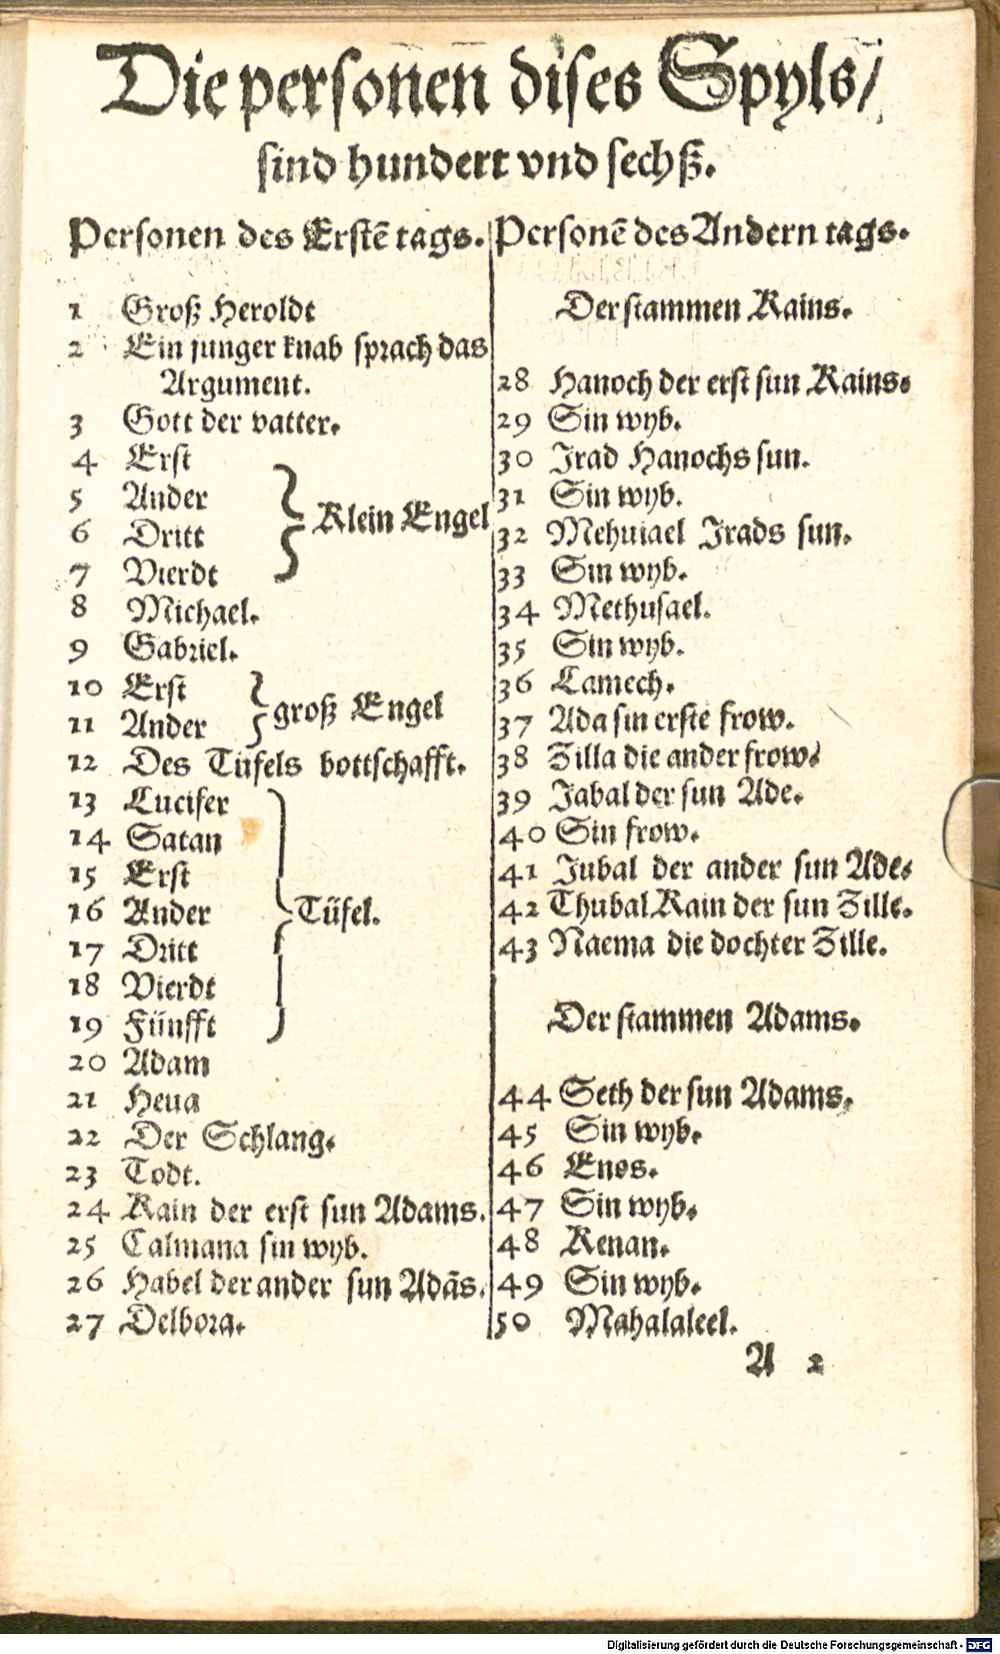 Die personen dises Spyls/
sind hundert vnd sechß.
Personen des Erstē tags.
1 Groß Heroldt
2 Ein junger knab sprach das
Argument.
3 Gott der vatter.
4 Erst
5 Ander
Klein Engel
6 Dritt
7 Vierdt
8 Michael.
9 Gabriel.
10 Erst
groß Engel
11 Ander
12 Des Tüfels bottschafft.
13 Lucifer
14 Satan
15 Erst
16 Ander
Tüfel.
17 Dritt
18 Vierdt
19 Fünfft
20 Adam
21 Heua
22 Der Schlang.
23 Todt.
24 Kain der erst sun Adams.
25 Calmana sin wyb.
26 Habel der ander sun Adās.
27 Delbora.
Personē des Andern tags.
Der stammen Kains.
28 Hanoch der erst sun Kains.
29 Sin wyb.
30 Irad Hanochs sun.
31 Sin wyb.
32 Mehuiael Irads sun.
33 Sin wyb.
34 Methusael.
35 Sin wyb.
36 Lamech.
37 Ada sin erste frow.
38 Zilla die ander frow.
39 Jabal der sun Ade.
40 Sin frow.
41 Jubal der ander sun Ade.
42 Thubal Kain der sun Zille.
43 Naema die dochter Zille.
Der stammen Adams.
44 Seth der sun Adams.
45 Sin wyb.
46 Enos.
47 Sin wyb.
48 Kenan.
49 Sin wyb.
50 Mahalaleel.
A 2
Digitalisierung gefördert durch die Deutsche Forschungsgemeinschaft - DFG